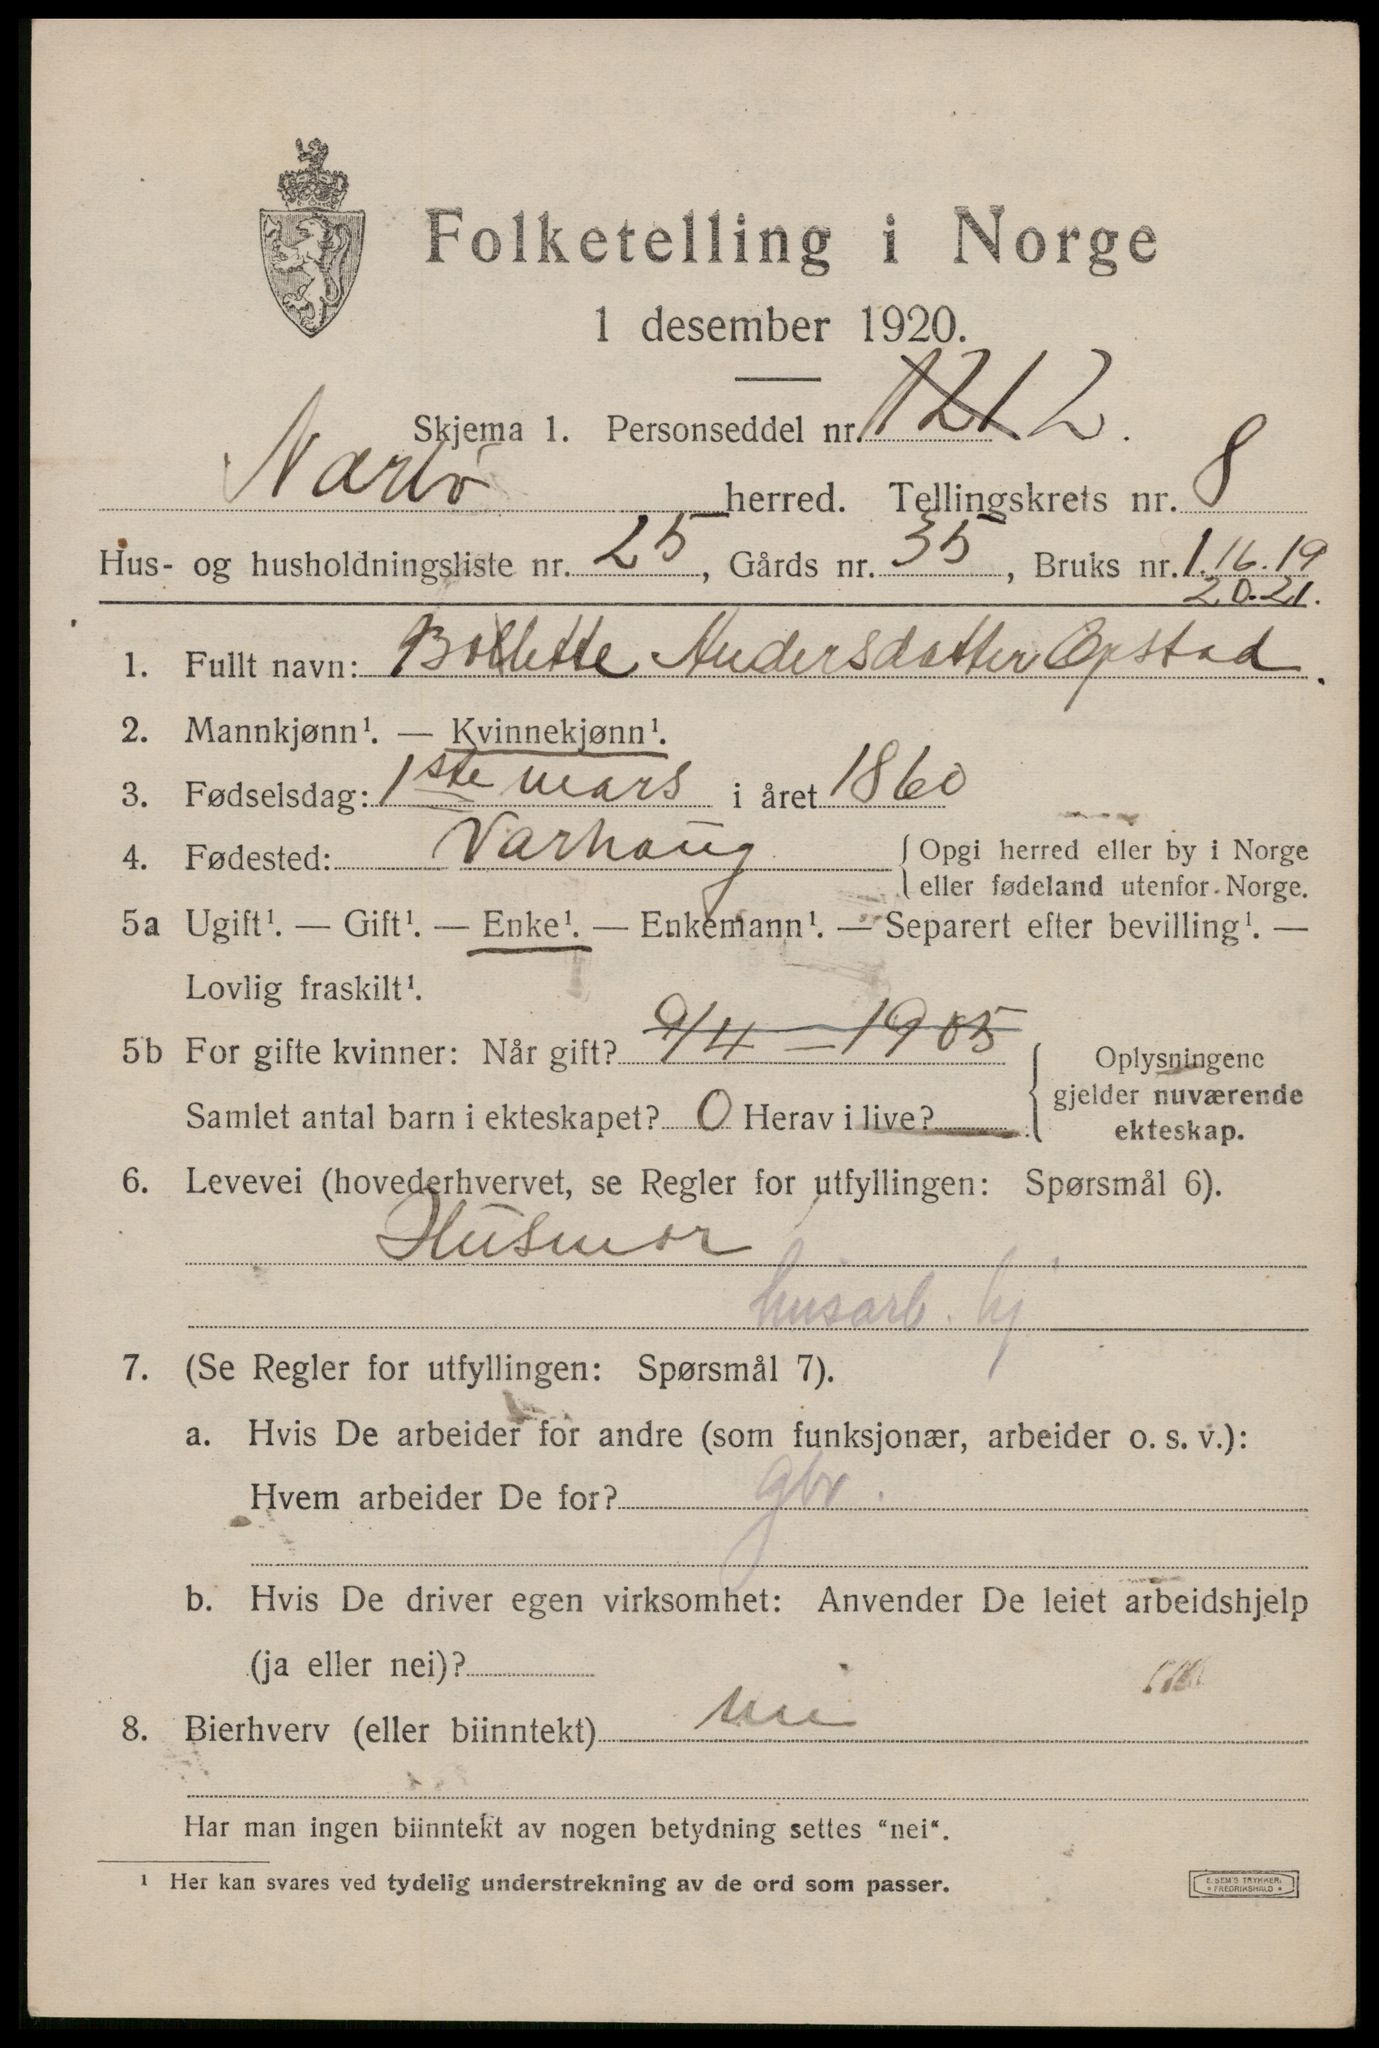 Folketelling i Norge
1 desember 1920.
Skjema 1. Personseddel nr. 121 2.
Nærbø herred. Tellingskrets nr. 8
Hus- og husholdningsliste nr. 25, Gårds nr. 35, Bruks nr. 1.16.19
20.21.
1. Fullt navn: Bollette Andersdatter Opstad.
2. Mannkjønn¹. — Kvinnekjønn¹.
3. Fødselsdag: 1ste mars i året 1860
4. Fødested: Varhaug { Opgi herred eller by i Norge
eller fødeland utenfor Norge.
5a Ugift¹. — Gift¹. — Enke¹. — Enkemann¹. — Separert efter bevilling¹. —
Lovlig fraskilt¹.
5b For gifte kvinner: Når gift? 9/4 – 1905
Samlet antal barn i ekteskapet? 0 Herav i live? —
{ Oplysningene
gjelder nuværende
ekteskap.
6. Levevei (hovederhvervet, se Regler for utfyllingen: Spørsmål 6).
Husmor
husarb. hj
7. (Se Regler for utfyllingen: Spørsmål 7).
a. Hvis De arbeider for andre (som funksjonær, arbeider o. s. v.):
Hvem arbeider De for? gbr.
b. Hvis De driver egen virksomhet: Anvender De leiet arbeidshjelp
(ja eller nei)?
8. Bierhverv (eller biinntekt) nei
Har man ingen biinntekt av nogen betydning settes "nei".
¹ Her kan svares ved tydelig understrekning av de ord som passer.
E. SEM'S TRYKKERI
FREDRIKSHALD